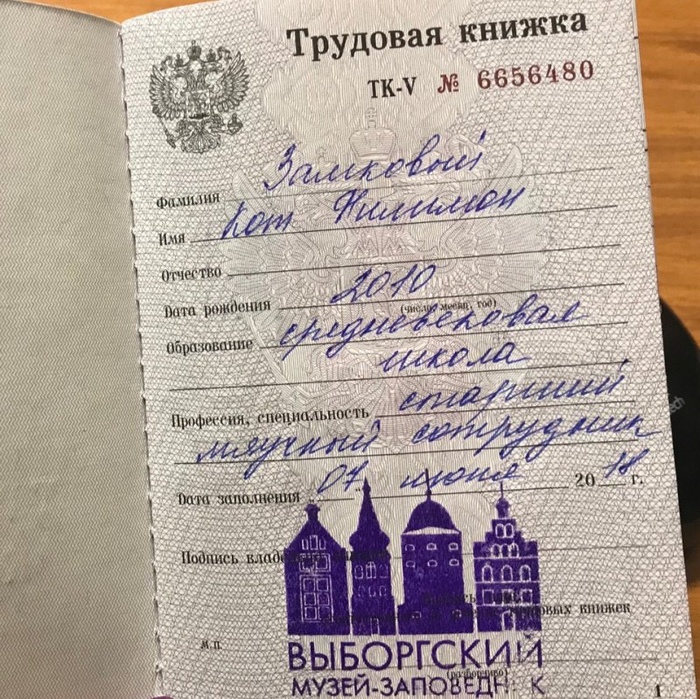 Трудовая книжка
ТК-V № 6656480
Фамилия Замковый
Имя Кот Филимон
Отчество
Дата рождения 2010
(число, месяц, год)
Образование средневековая
школа
Профессия, специальность старший
мяучный сотрудник
Дата заполнения 07 июня 2018 г.
Подпись
книжек
М.П.
ВЫБОРГСКИЙ
МУЗЕЙ-ЗАПОВЕДНИК
1